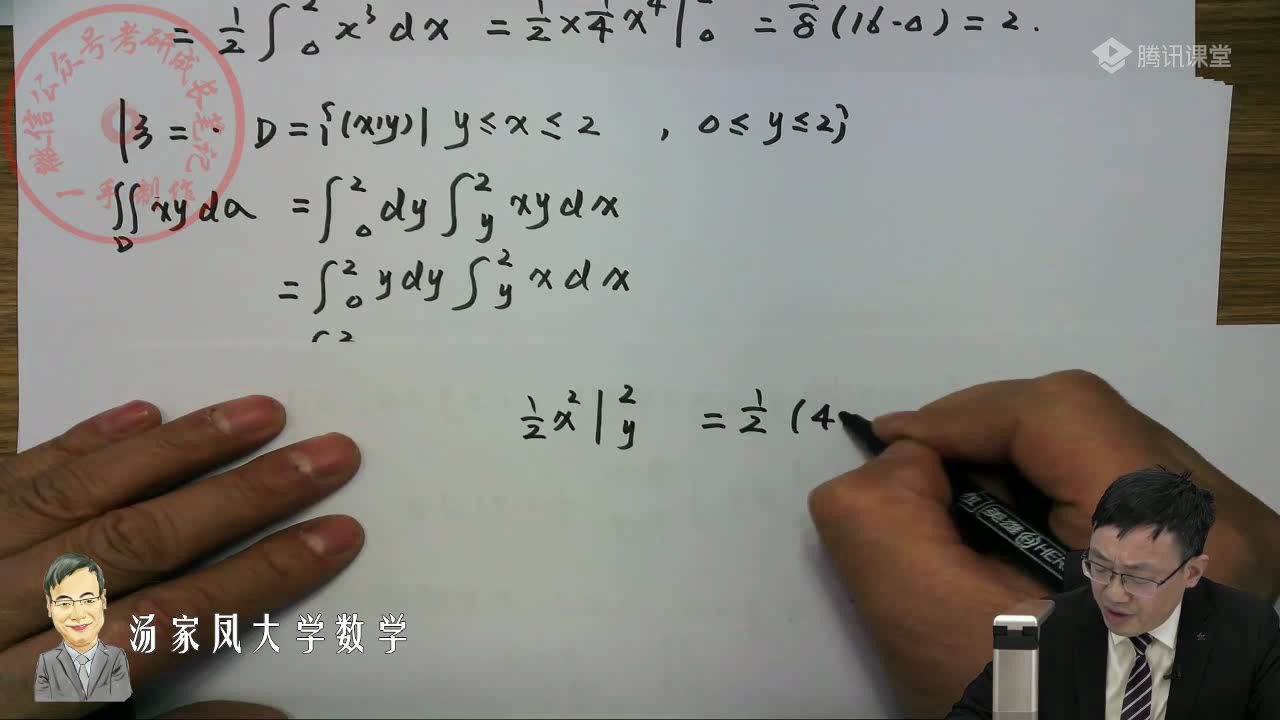 = 1/2 ∫₀² x³ dx = 1/2 × 1/4 x⁴ |₀ = 1/8 (16-0) = 2.
腾讯课堂
微信公众号考研成长笔记
一手制作
D = {(x,y) | y ≤ x ≤ 2 , 0 ≤ y ≤ 2}
∬_D xy dσ = ∫₀² dy ∫_y² xy dx
= ∫₀² y dy ∫_y² x dx
1/2 x² |_y² = 1/2 (4
汤家凤大学数学